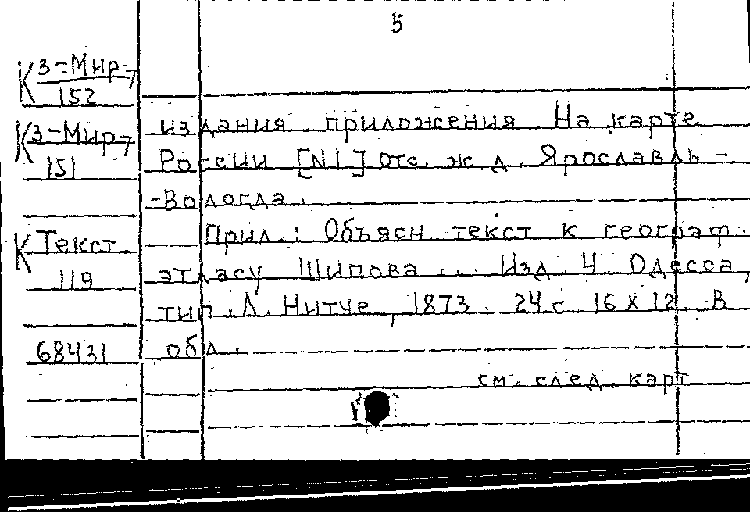 5
К 3-Мир-7
152
К 3-Мир-7
151
К Текст
119
68431
издания приложения На карте
России [N1] отс. ж. д. Ярославль -
- Вологда.
Прил.: Объясн. текст к географ.
атласу Шипова... Изд. 4 Одесса,
тип. Л. Нитче, 1873. 24 с. 16 х 12. В
обл.
см. след. карт